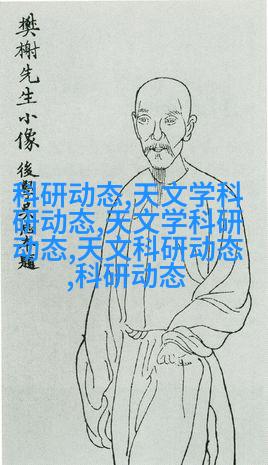 樊榭先生小像
後學 題
科研动态,天文学科
研动态,天文学科研
动态,天文科研动态
,科研动态